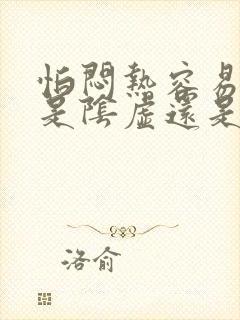 怕悶熱容易
是陰虛還是
洛俞